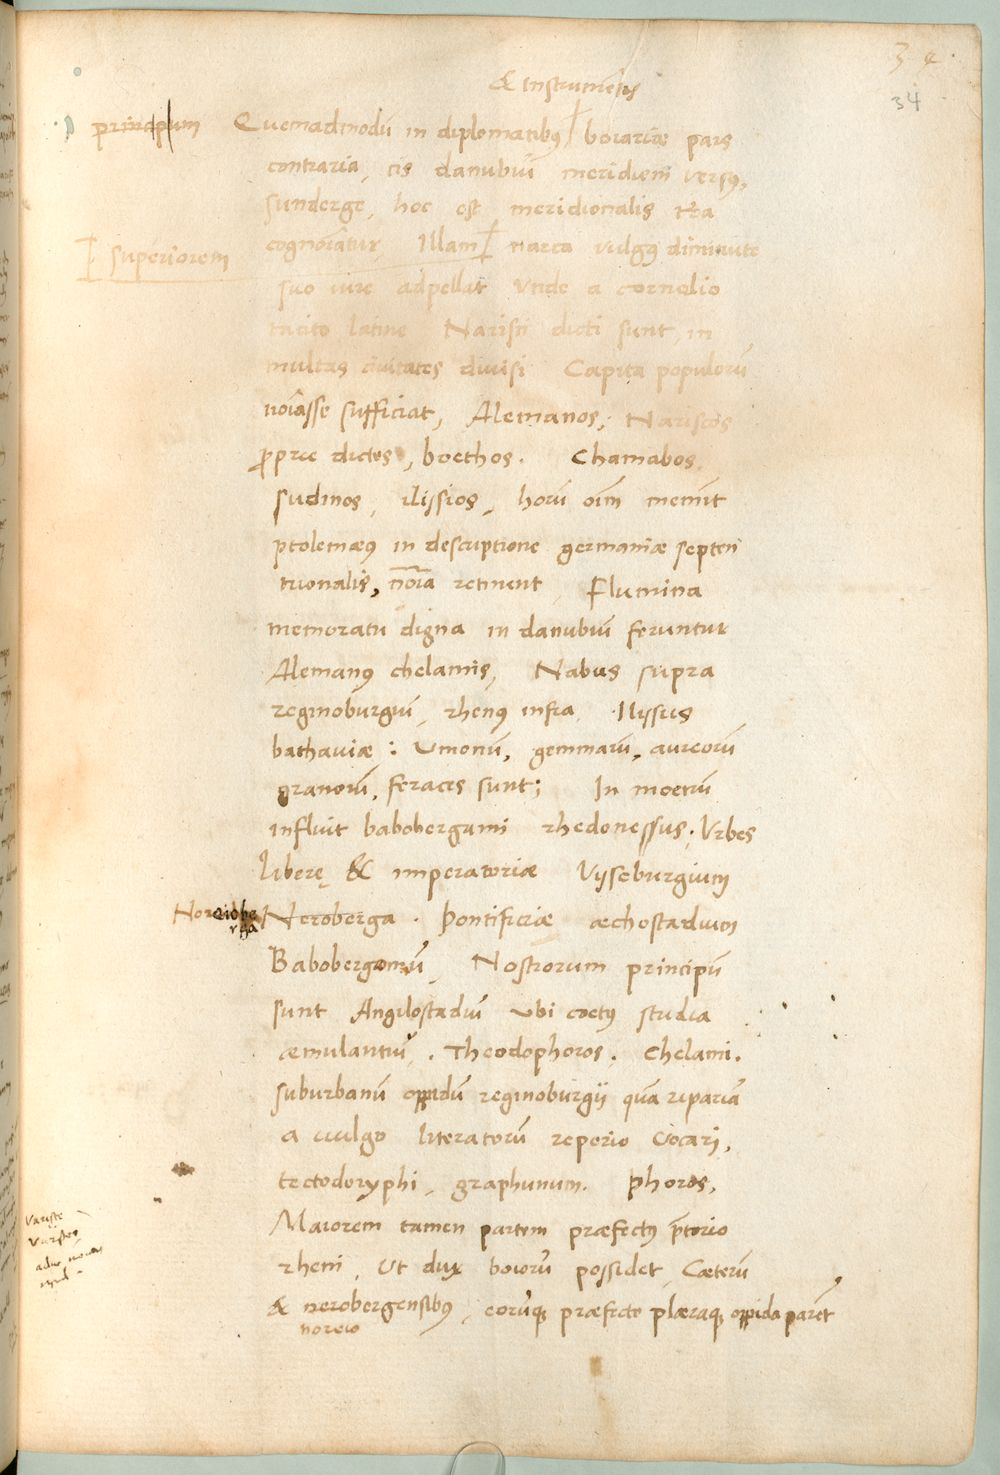 3 4
34
& instrumētis
principum Quemadmodū in diplomatibus boiariæ pars
contraria, cis danubiū meridiem versus,
sunderge, hoc est meridionalis ita
superiorem
cognoīatur Illam narca vulgus diminute
suo iure adpellat Unde a cornelio
tacito latine Naristi dicti sunt, in
multas civitates divisi Capita populorū
noīasse sufficiat, Alemanos, Nariscos
proprie dictos, boethos. Chamabos,
sudinos, ilissios, horū oīm meminit
ptolemæus in descriptione germaniæ septen
trionalis, noīa retinent, Flumina
memoratu digna in danubiū feruntur
Alemanus chelamis, Nabus supra
reginoburgiū, rhenus infra, Ilissus
bathaviæ : Umonū, gemmarū, aureorū
granorū, feraces sunt; In moenū
influit babobergami rhedonessus, Urbes
liberę & imperatoriæ Viseburgium
Noreiobe
rga
Neroberga . pontificiæ æchostadium
Babobergomū, Nostrorum principū
sunt Angilostadiū ubi coetus studia
æmulantiū, . Theodophoros, Chelami.
suburbanū oppidū reginoburgii quā ripariā
a vulgo literatorū reperio Vocari,
tectodoryphi, graphunum. phoros,
Maiorem tamen partem præfectus p̄torio
rheni, Ut dux boiorū possidet, Cæterū
& nerobergensibus, eorūque præfecto plæraque oppida parēt
noreio